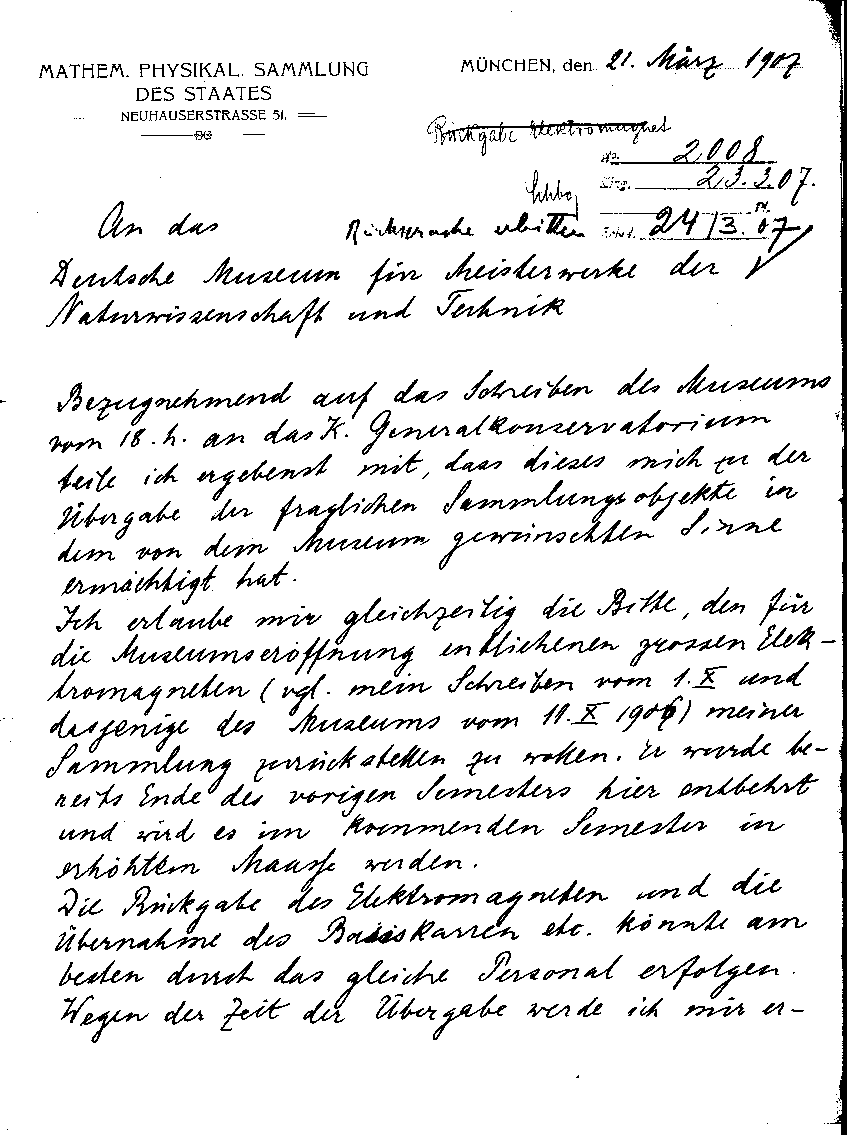 MATHEM. PHYSIKAL. SAMMLUNG
DES STAATES
NEUHAUSERSTRASSE 51.
MÜNCHEN, den 21. März 1907
Rückgabe Elektromagnet
No. 2008
23.3.07.
Rücksprache erbitten
24/3.07
An das
Deutsche Museum für Meisterwerke der
Naturwissenschaft und Technik
Bezugnehmend auf das Schreiben des Museums
vom 18. h. an das K. Generalkonservatorium
teile ich ergebenst mit, dass dieses mich zu der
Übergabe der fraglichen Sammlungsobjekte in
dem von dem Museum gewünschten Sinne
ermächtigt hat.
Ich erlaube mir gleichzeitig die Bitte, den für
die Museumseröffnung entliehenen grossen Elek-
tromagneten (vgl. mein Schreiben vom 1. X und
dasjenige des Museums vom 11. X 1906) meiner
Sammlung zurückstellen zu wollen. Er wurde be-
reits Ende des vorigen Semesters hier entbehrt
und wird es im kommenden Semester in
erhöhtem Maasse werden.
Die Rückgabe des Elektromagneten und die
Übernahme des Basiskarren etc. könnte am
besten durch das gleiche Personal erfolgen.
Wegen der Zeit der Übergabe werde ich mir er-